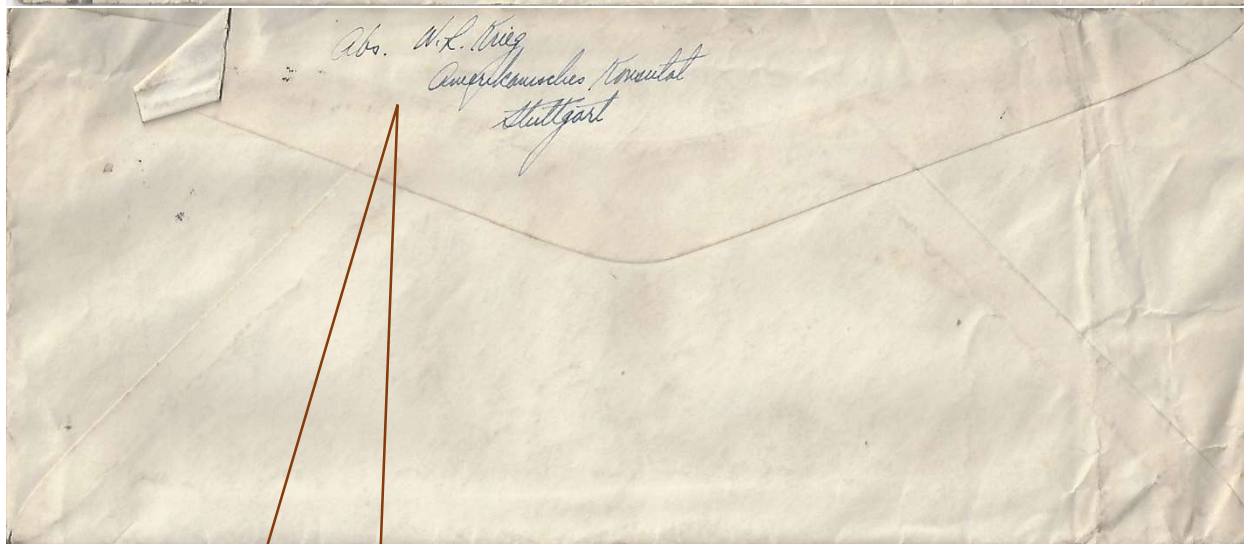 Abs. W. L. Krieg
Amerikanisches Konsulat
Stuttgart